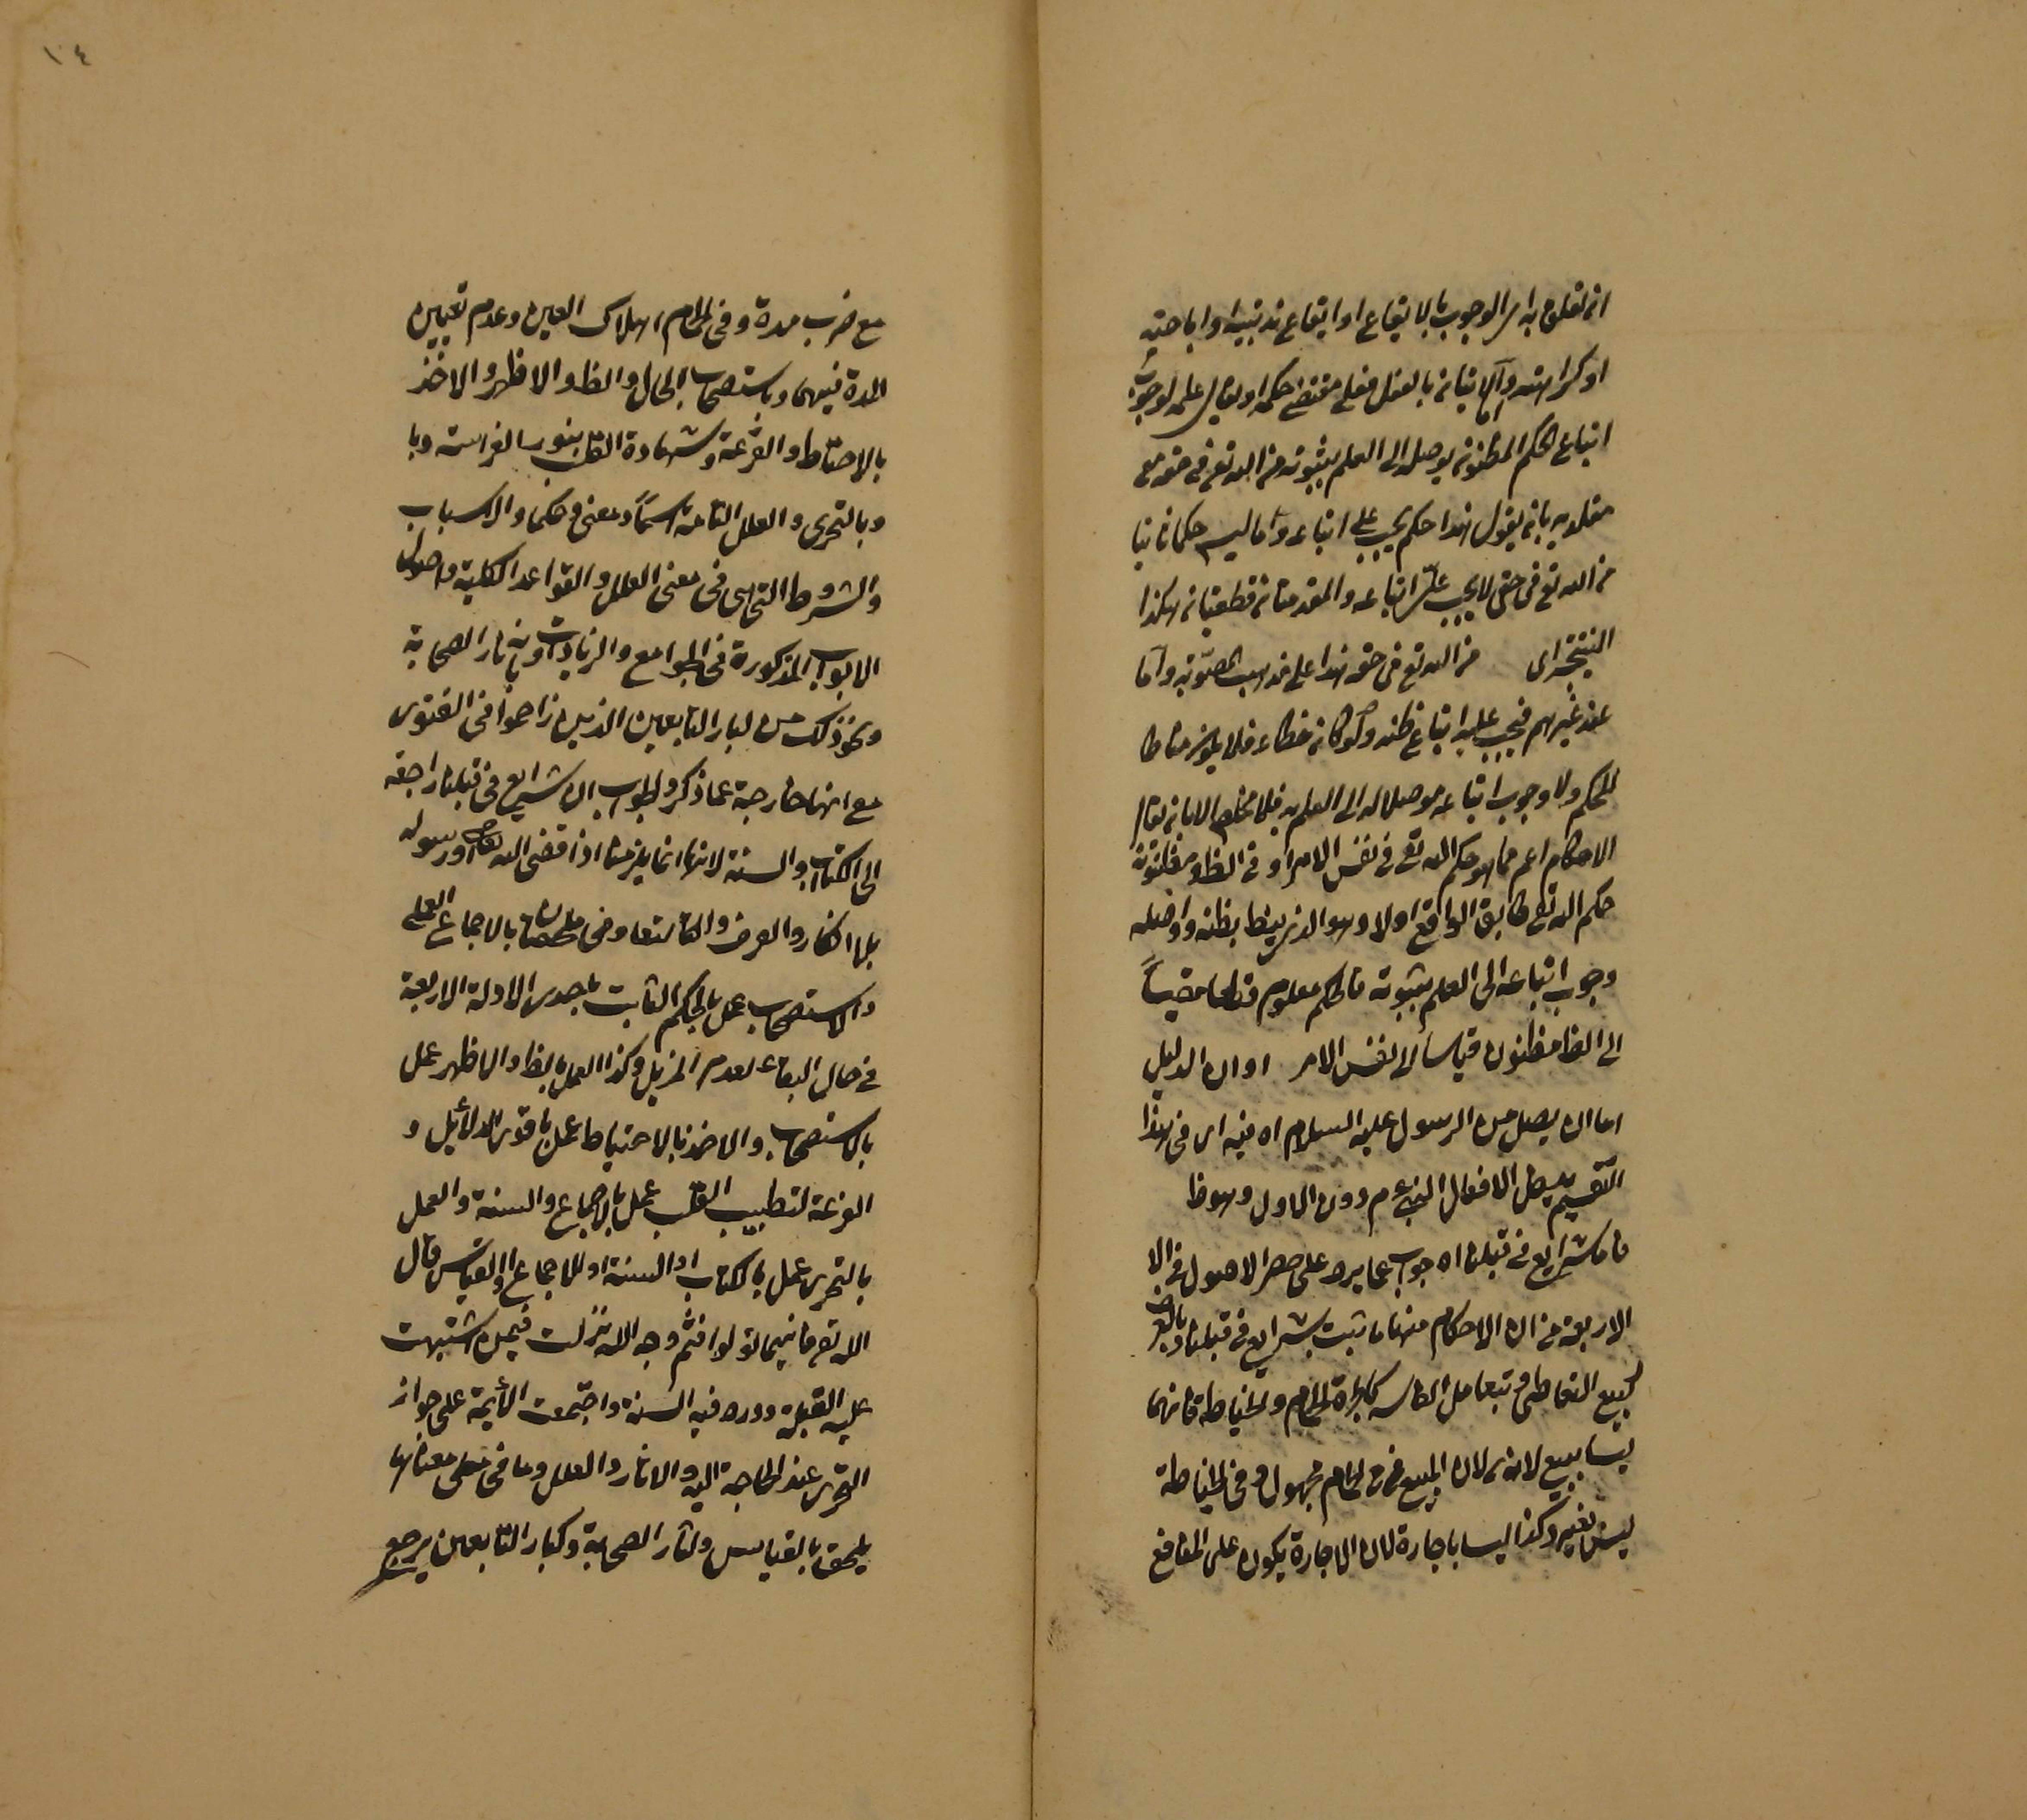 ان تعلق به امر الوجوب بالايقاع او ايقاع ندبيته او اباحته
او كراهته واما الاتيانه بالفعل فعلى مقتضى حكمه لوجوب
اتباع الحكم المظنونه يوصله الى العلم بثبوته من الله تع فى حقه مع
مقلديه بانه يقول هذا حكم يجب على اتباعه وما ليس حكما ثابتا
من الله تع فى حقى لا يجب على اتباعه والمقدمتان قطعيتان هكذا
من الله تع فى حقه هذا على مذهب المصوبة واما
عند غيرهم فيجب عليه اتباع ظنه ولو كان خطاء فلا يكون مناطا
للحكم ولا وجوب اتباعه موصلا له الى العلم به فلا مخلص الا بان يقال
الاحكام اعم مما هو حكم الله تع فى نفس الامر او فى الظ ومظنونه
حكم الله تع طابق الواقع اولا وهو الذى ينط بظنه واوصله
وجوب اتباعه الى العلم بثبوته فالحكم معلوم قطعا قياسا
الى الظ مظنون قياسا الى نفس الامر او ان الدليل
اما ان يصل من الرسول عليه السلام اه فيه اى فى هذا
التقسيم يدخل الافعال النبى عم دون الاول وهو ظ
فامشرايع من قبلنا اه جواب عما يرد على حصر الاصول فى الا
الاربعة من ان الاحكام منها ما ثبت بشرايع من قبلنا وبالعرف
كبيع التعاطى وبتعامل الناس كاجرة الحمام والخياطة فانهما
ليسا ببيع لان المبيع فى الحمام مجهول وفى الخياطة
ليس بعين وكذا ليسا باجارة لان الاجارة يكون على المنافع
١٤
مع ضرب مدة وفى الحمام اهلاك العين وعدم تعيين
المدة فيهما وباستصحاب الحال والظ والاظهر والاخذ
بالاحتياط والقرعة وشهادة القلب بنور الفراسة وبا
وبالتحرى والعلل التامة اسما ومعنى وحكما والاسباب
والشروط التى هى فى معنى العلل والقواعد الكلية واصول
الابواب المذكورة فى الجوامع والزيادات وبآثار الصحابة
ونحو ذلك من كبار التابعين الذين زاحموا فى الفتوى
مع انها خارجة عما ذكر والجواب ان شرايع من قبلنا راجعة
الى الكتاب والسنة لانها انما يلزمنا اذا قضى الله تعالى ورسوله
بلا انكار والعرف والتعامل ملحقان بالاجماع العملى
والاستصحاب عمل بالحكم الثابت باحدى الادلة الاربعة
فى حال البقاء لعدم المزيل وكذا العمل بالظ والاظهر عمل
بالاستصحاب والاخذ بالاحتياط عمل باقوى الدلائل و
القرعة لتطييب القلب عمل بالاجماع والسنة والعمل
بالتحرى عمل بالكتاب او السنة او الاجماع او القياس قال
الله تع فاينما تولوا فثم وجه الله نزلت فيمن اشتبهت
عليه القبلة وورد فيه السنة واجتمعت الائمة على جواز
التحرى عند الحاجة اليه والاثار والعلل وما فى معناها
يلحق بالقياس وآثار الصحابة وكبار التابعين يرجع